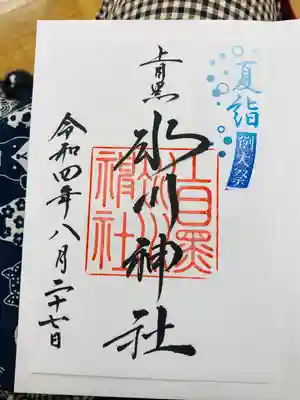 夏詣
例大祭
上目黒
氷川神社
上目黒
氷川
神社
令和四年八月二十七日